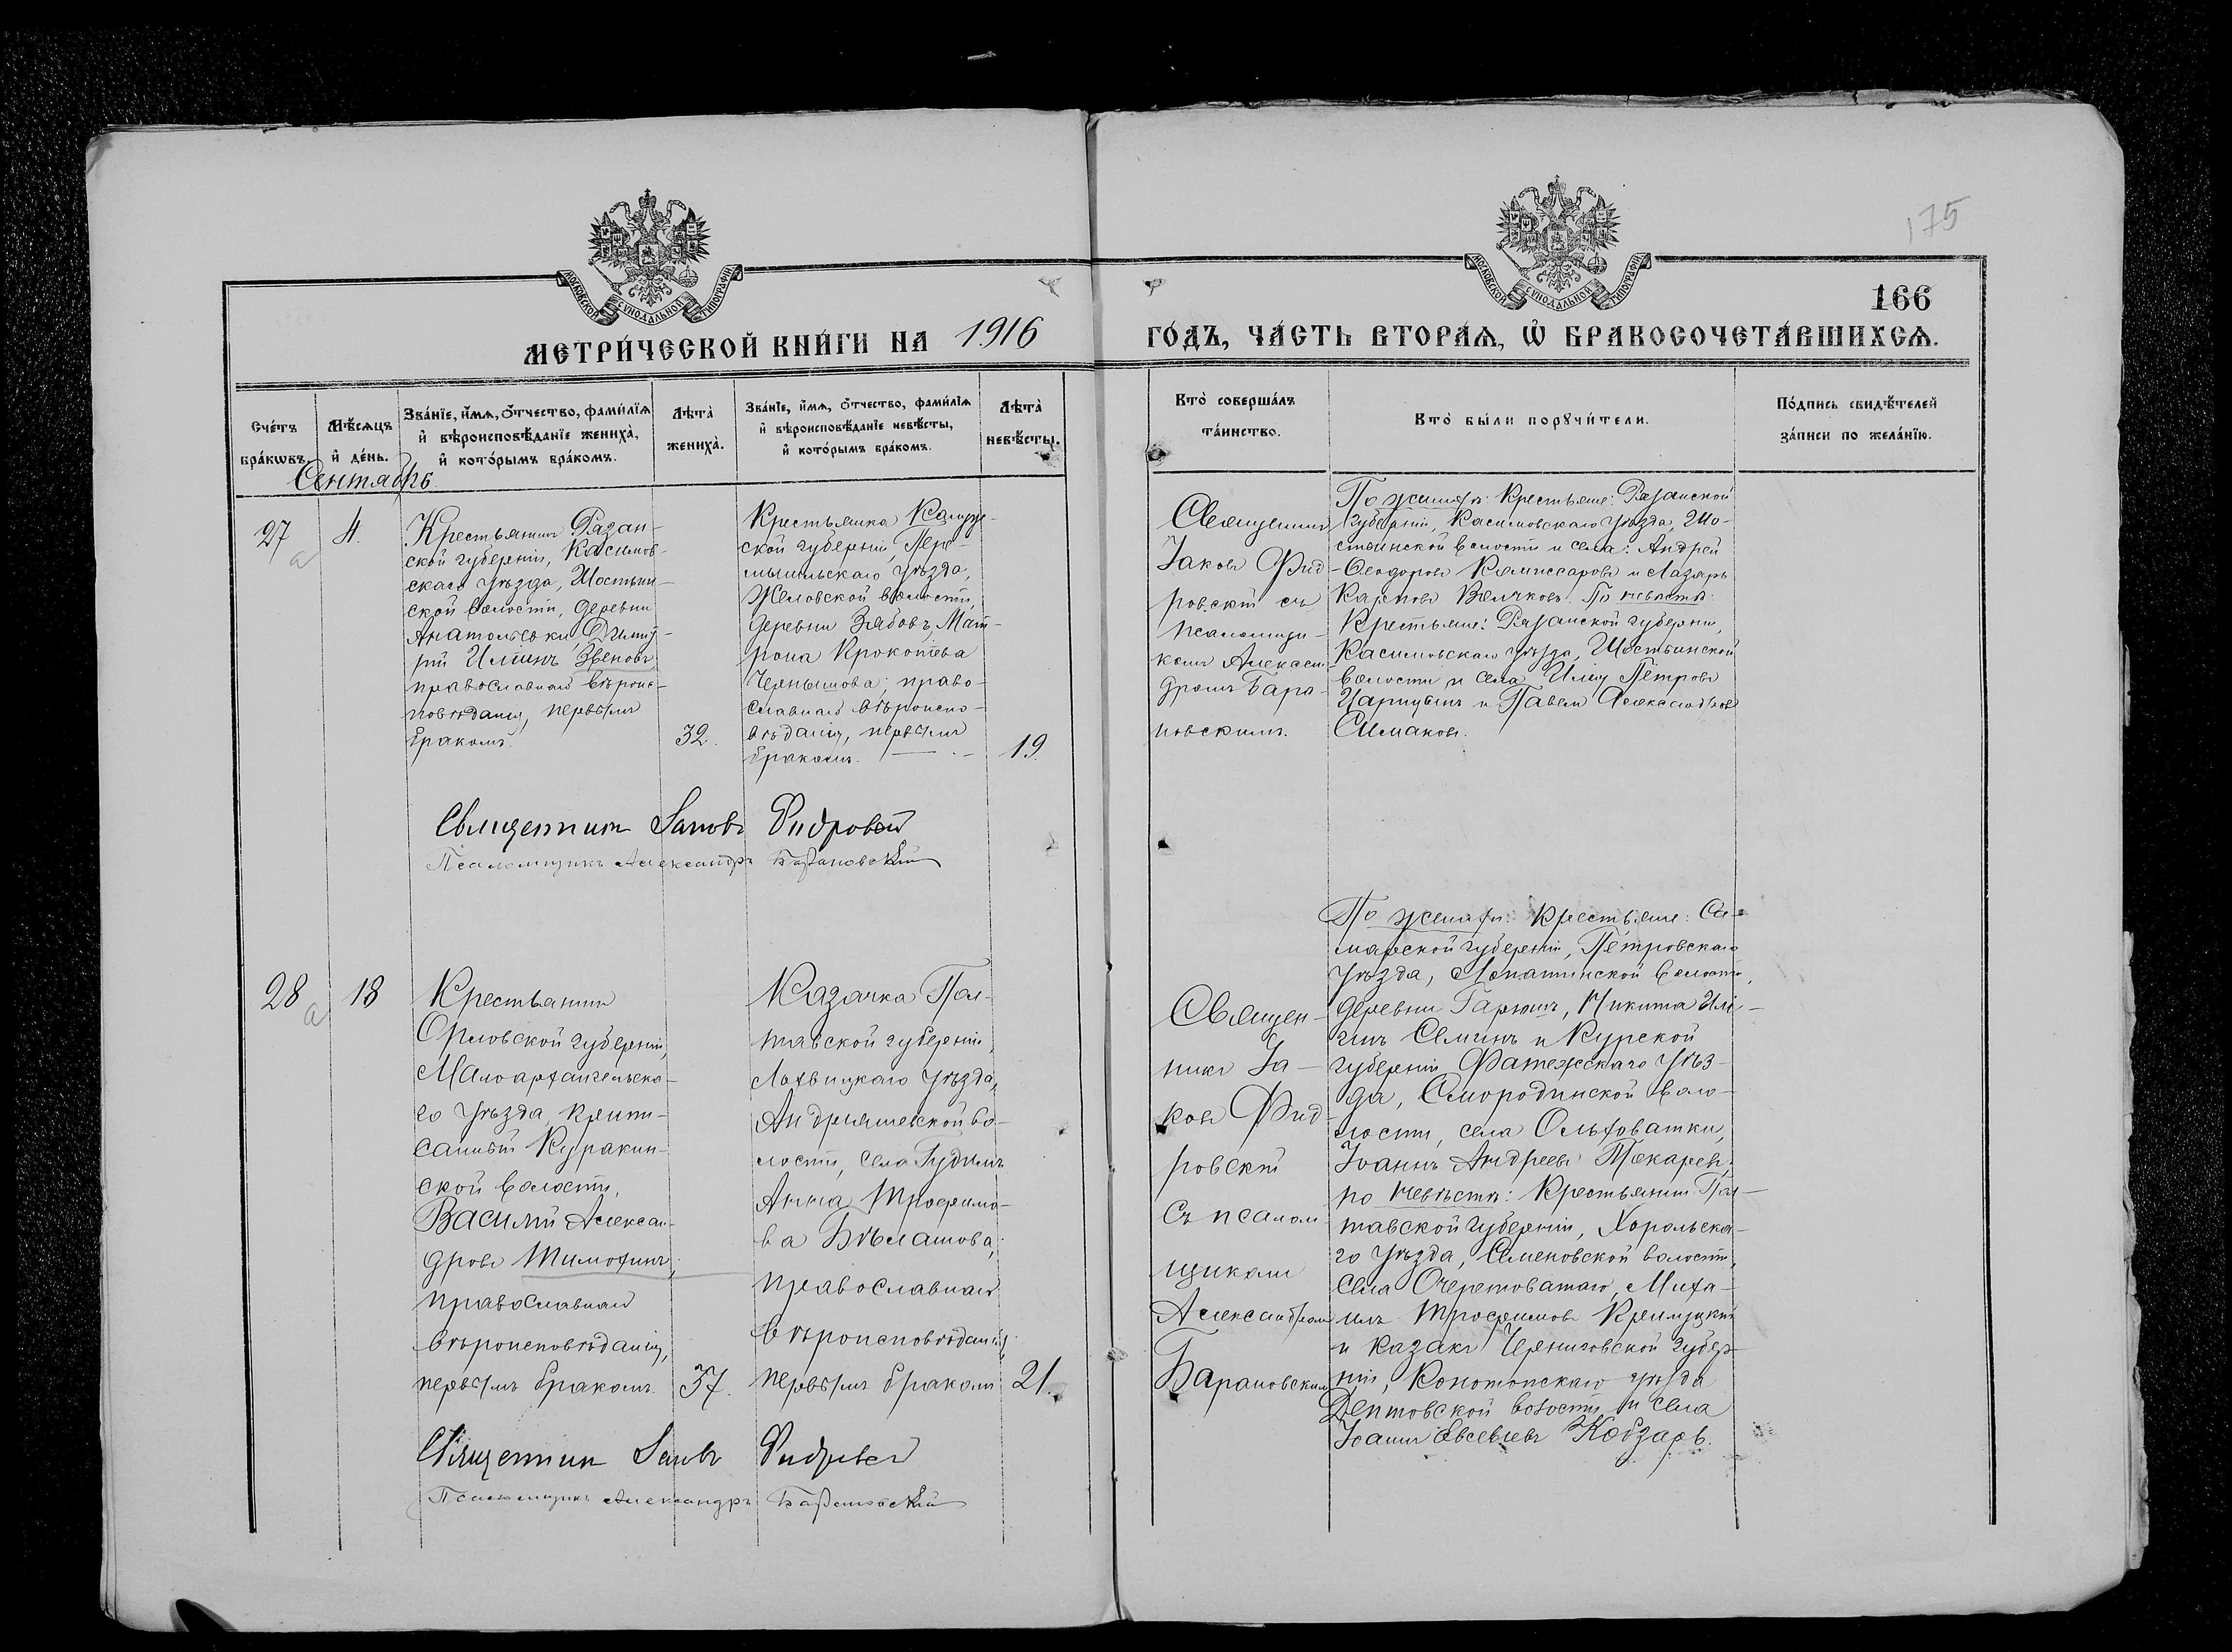 175
166
МОСКОВСКОЙ СУНОДАЛЬНОЙ ТИПОГРАФІИ
МОСКОВСКОЙ СУНОДАЛЬНОЙ ТИПОГРАФІИ
МЕТРИ́ЧЕСКОЙ КНИ́ГИ НА 1916
ГО́ДЪ, ЧА́СТЬ ВТОРА́Ѧ, Ѡ БРАКОСОЧЕТА́ВШИХСѦ.
Сче́тъ бра́кѡвъ.
Мѣ́сяцъ и҆ де́нь.
Зва́нїе, и҆́мѧ, ѻ҆́тчество, фами́лїѧ
и҆ вѣроисповѣ́данїе жениха̀,
и҆ кото́рымъ бра́комъ.
Лѣта̀
жениха̀.
Зва́нїе, и҆́мѧ, ѻ҆́тчество, фами́лїѧ
и҆ вѣроисповѣ́данїе невѣ́сты,
и҆ кото́рымъ бра́комъ.
Лѣта̀
невѣ́сты.
Кто̀ соверша́лъ
та́инство.
Кто̀ бы́ли порꙋчи́тели.
По́дпись свидѣ́телей
за́писи по жела́нїю.
Сентябрь.
27
4.
Крестьянинъ Рязан-
ской губерніи, Касимов-
скаго уѣзда, Шостьин-
ской волости, деревни
Анатольевки, Дмит-
рій Иліинъ Звеновъ,
православнаго вѣроис-
повѣданія, первымъ
бракомъ.
32.
Крестьянка Калуж-
ской губерніи, Пере-
мышльскаго уѣзда,
Желовской волости,
деревни Зябовъ, Мат-
рона Прокопіева
Чернышова; право-
славнаго вѣроиспо-
вѣданія, первымъ
бракомъ.
19.
Священникъ
Іаковъ Фид-
ровскій съ
псаломщи-
комъ Алексан-
дромъ Бара-
новскимъ.
По женихѣ: Крестьяне: Рязанской
губерніи, Касимовскаго уѣзда, Шо-
стьинской волости и села: Андрей
Ѳеодоровъ Комиссаровъ и Лазарь
Карповъ Волчковъ. По невѣстѣ:
Крестьяне: Рязанской губерніи,
Касимовскаго уѣзда, Шостьинской
волости и села Илія Петровъ
Царицынъ и Павелъ Александровъ
Симаковъ.
Священникъ Іаковъ Фидровскій
Псаломщикъ Александръ Барановскій
28
18
Крестьянинъ
Орловской губерніи,
Малоархангельска-
го уѣзда, припи-
санный Куракин-
ской волости,
Василій Алексан-
дровъ Тимохинъ,
православнаго
вѣроисповѣданія,
первымъ бракомъ.
37.
Казачка Пол-
тавской губерніи,
Лохвицкаго уѣзда,
Андріяшевской во-
лости, села Гудимъ
Анна Трофимо-
ва Бѣлашова;
православнаго
вѣроисповѣданія,
первымъ бракомъ
21.
Священ-
никъ Іа-
ковъ Фид-
ровскій
съ псалом-
щикомъ
Александромъ
Барановскимъ
По женихѣ: Крестьяне: Са-
марской губерніи, Петровскаго
уѣзда, Лопатинской волости,
деревни Гарюшъ, Никита Илі-
инъ Семинъ и Курской
губерніи Фатежскаго уѣз-
да, Смородинской воло-
лости, села Ольховатки,
Іоаннъ Андреевъ Токаревъ;
по невѣстѣ: Крестьянинъ Пол-
тавской губерніи, Хорольска-
го уѣзда, Семеновской волости,
села Очеретоватаго, Миха-
илъ Трофимовъ
и казакъ Черниговской губер-
ніи, Конотопскаго уѣзда
Дептовской волости и села
Іоаннъ Евсевіевъ Кобзарь.
Священникъ Іаковъ Фидровскій
Псаломщикъ Александръ Барановскій